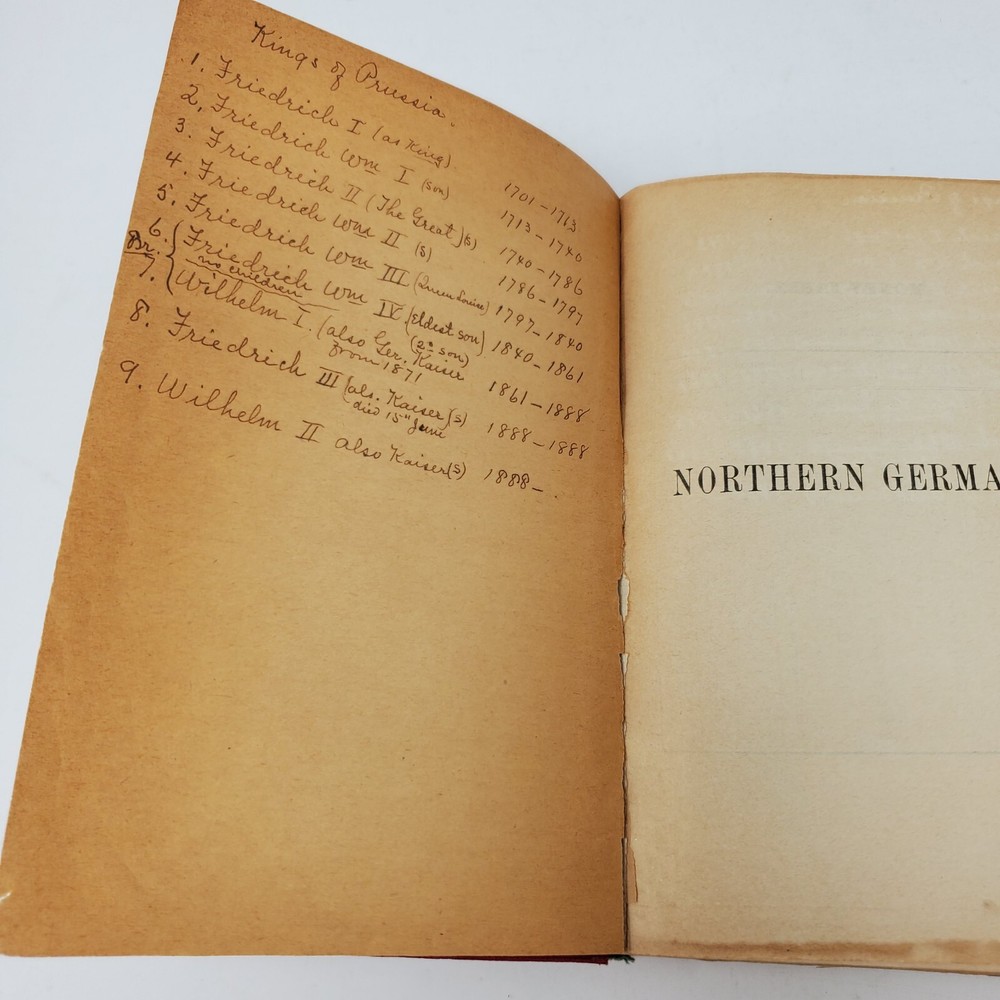 Kings of Prussia.
1. Friedrich I (as King) 1701-1713
2. Friedrich Wm I (son) 1713-1740
3. Friedrich II (The Great) (s) 1740-1786
4. Friedrich Wm II (s) 1786-1797
5. Friedrich Wm III (Queen Louise) 1797-1840
6. Friedrich Wm IV (Eldest son) 1840-1861
Br. no children (2d son)
7. Wilhelm I. (also Ger. Kaiser 1861-1888
from 1871
8. Friedrich III (als. Kaiser) (s) 1888-1888
died 15th June
9. Wilhelm II also Kaiser (s) 1888-.
NORTHERN GERMA